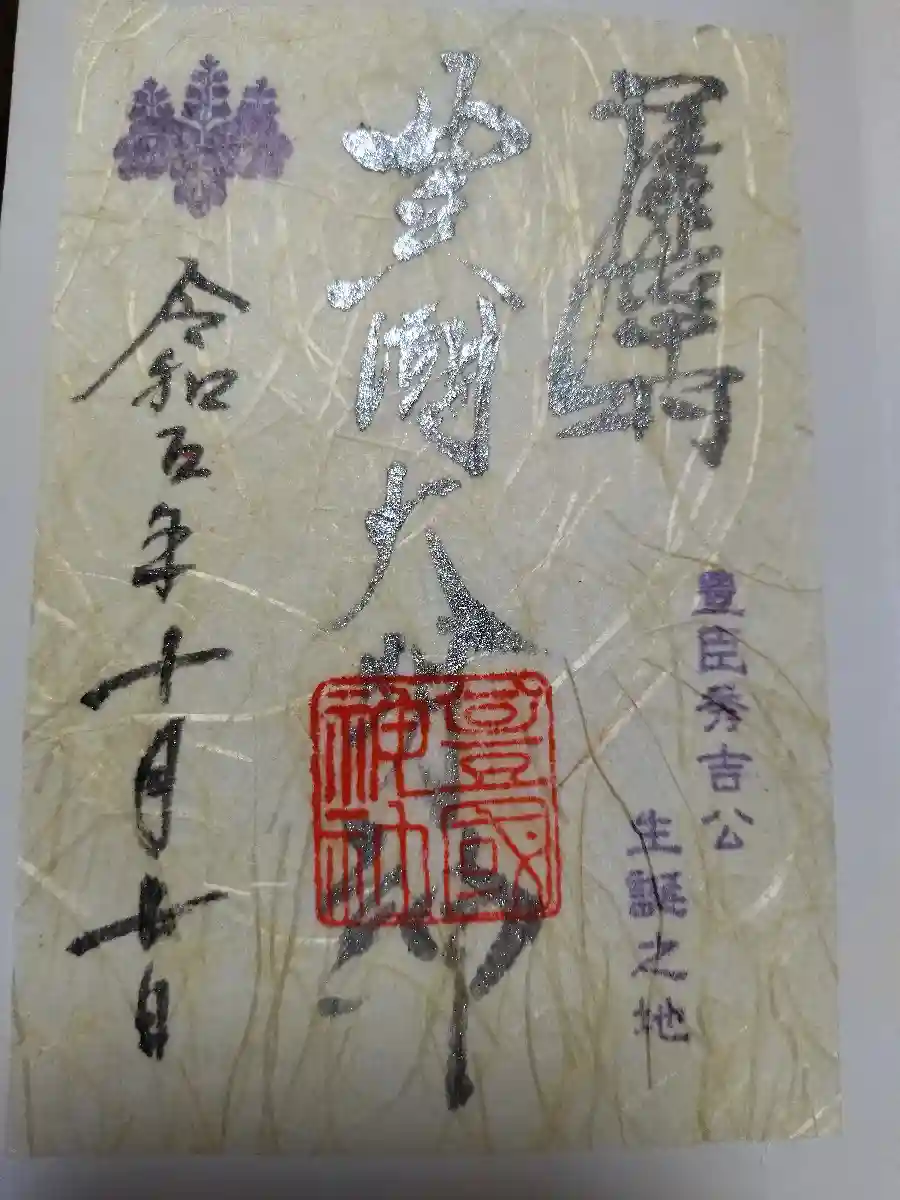 中村
豊臣秀吉公
生誕之地
豊國大明神
豊國神社
令和五年十月十日